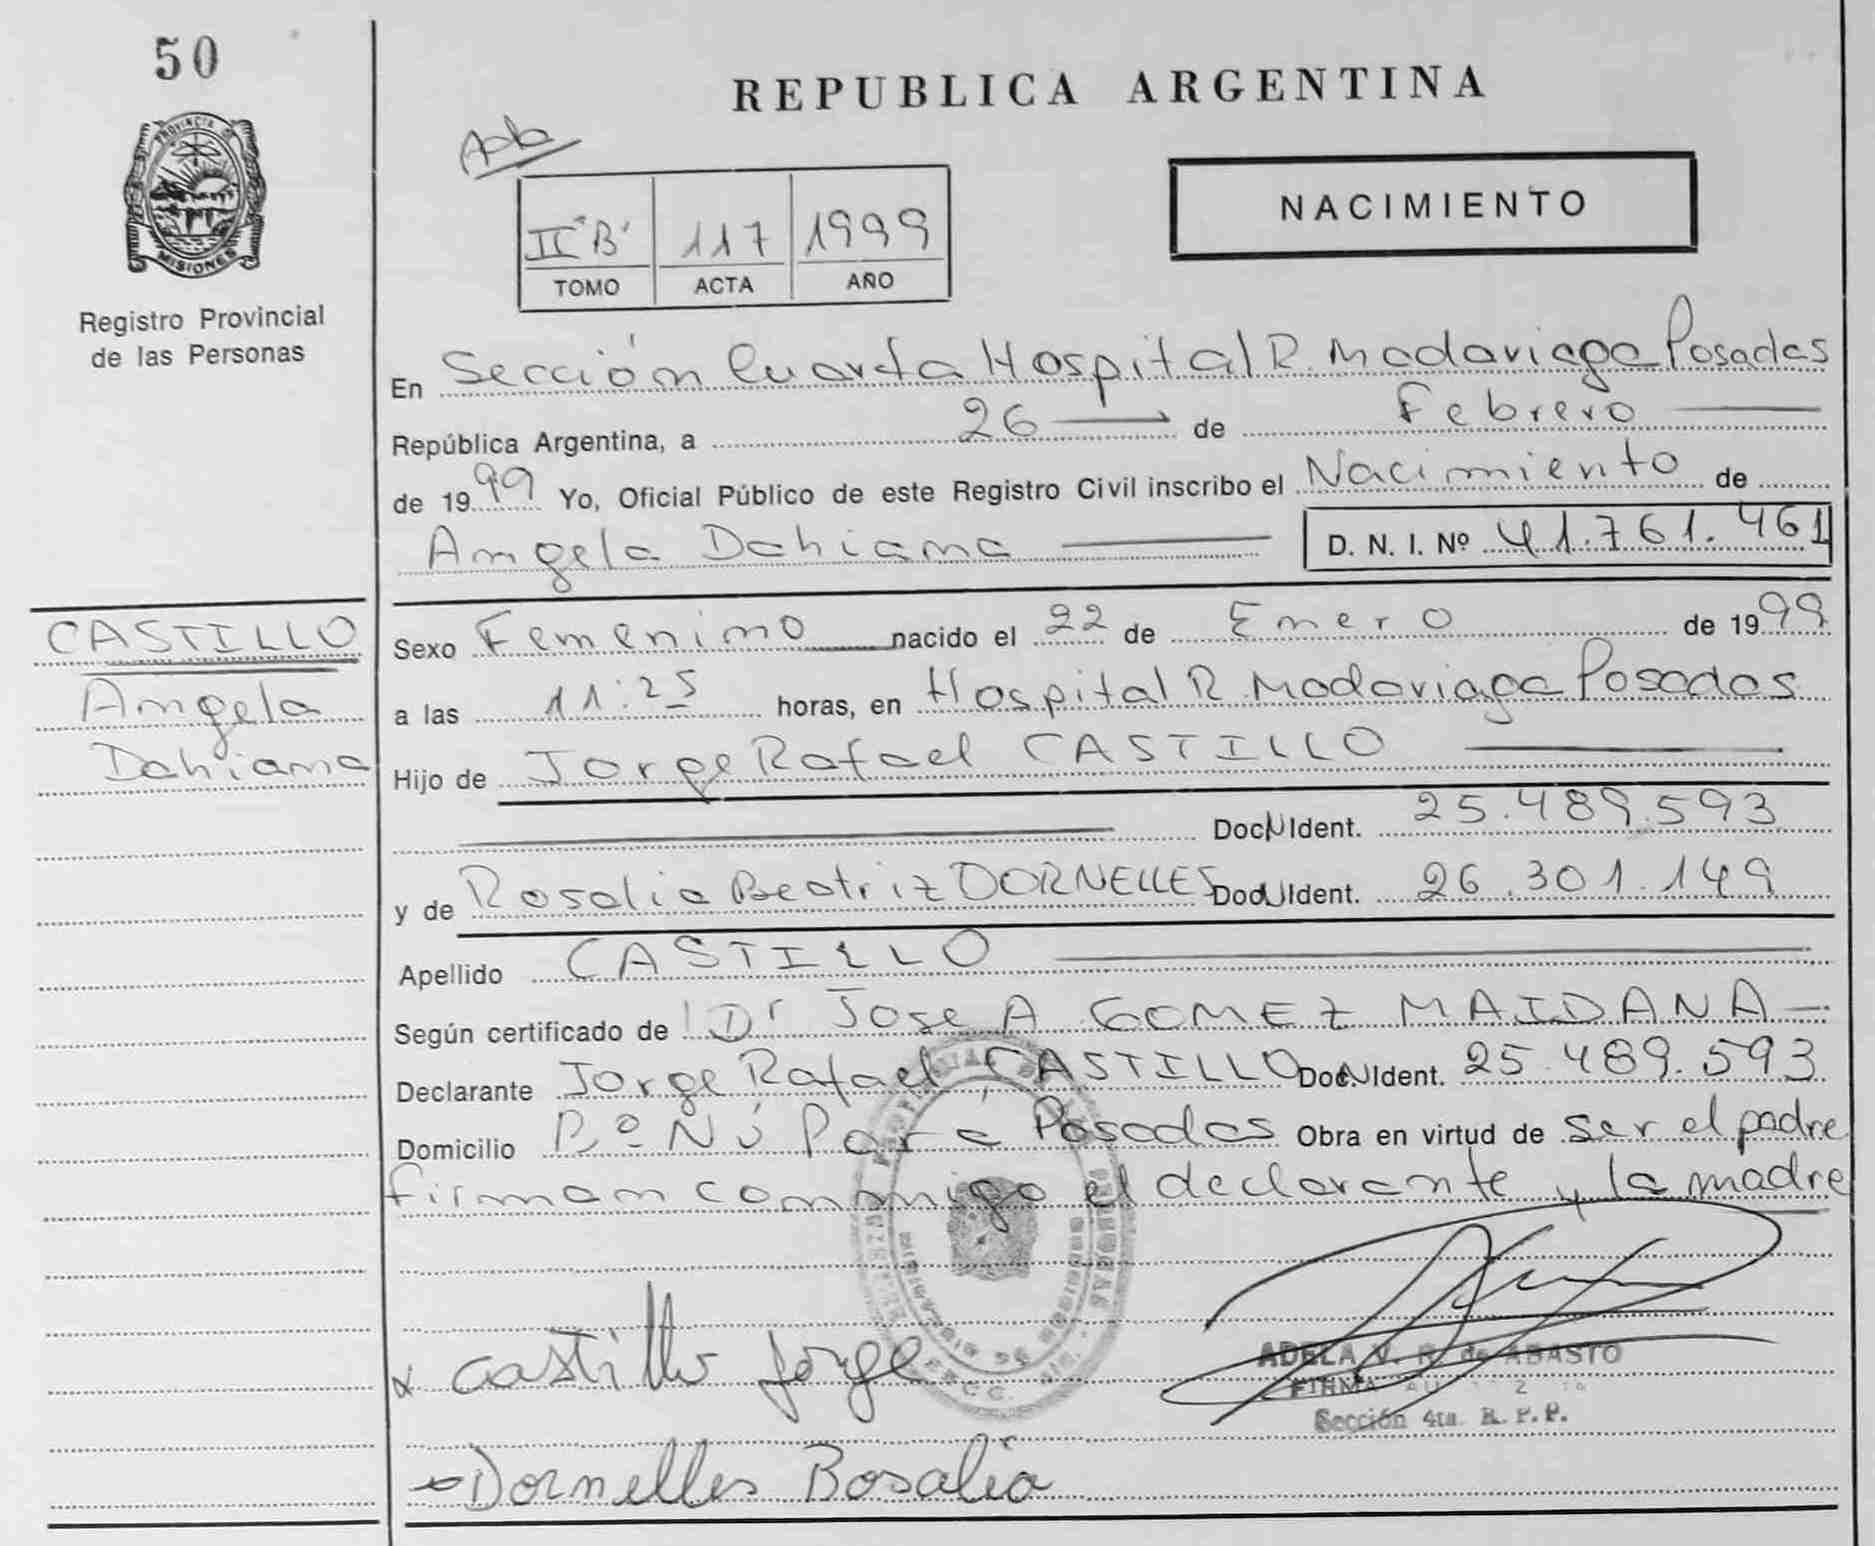 50
REPUBLICA ARGENTINA
PROVINCIA DE
MISIONES
Registro Provincial
de las Personas
II "B" 117 1999
TOMO ACTA AÑO
NACIMIENTO
En Sección Cuarta Hospital R. Madariaga Posadas
República Argentina, a 26 de Febrero
de 1999 Yo, Oficial Público de este Registro Civil inscribo el Nacimiento de
Angela Dahiana D. N. I. Nº 41.761.461
CASTILLO
Angela
Dahiana
Sexo Femenino nacido el 22 de Enero de 1999
a las 11:25 horas, en Hospital R. Madariaga Posadas
Hijo de Jorge Rafael CASTILLO
Doc N Ident. 25.489.593
y de Rosalia Beatriz DORNELLES Doc N Ident. 26.301.149
Apellido CASTILLO
Según certificado de Dr Jose A GOMEZ MAIDANA
Declarante Jorge Rafael CASTILLO Doc N Ident. 25.489.593
Domicilio Bº Ñú Porá Posadas Obra en virtud de ser el padre
firman conmigo el declarante y la madre
Castillo Jorge
ADELA V. R. de ABASTO
FIRMA
Sección 4ta. R. P. P.
Dornelles Rosalia